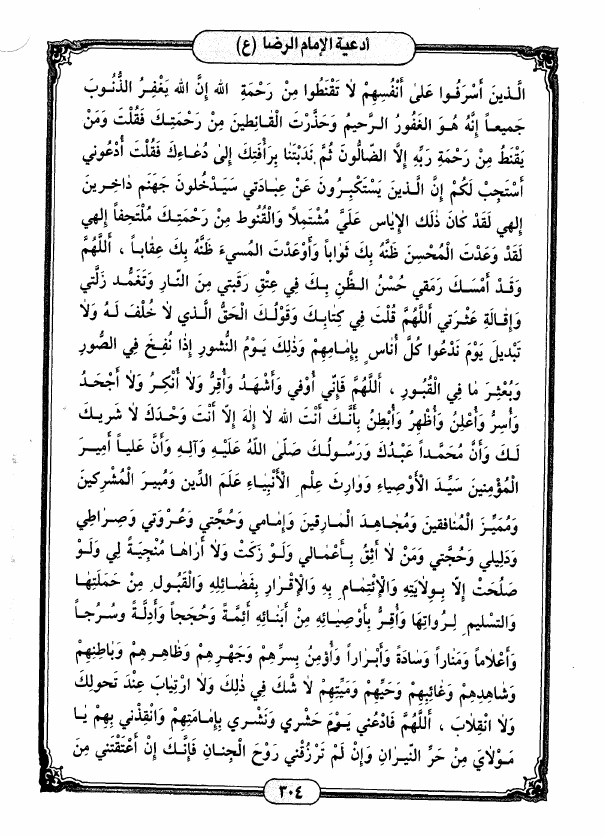 أدعية الإمام الرضا (ع)
الَّذينَ أَسْرَفُوا عَلىٰ أَنْفُسِهِمْ لاٰ تَقْنَطُوا مِنْ رَحْمَةِ اللهِ إِنَّ اللهَ يَغْفِرُ الذُّنُوبَ
جَميعاً إِنَّهُ هُوَ الغَفُورُ الرَّحيمُ وَحَذَّرْتَ القٰانِطينَ مِنْ رَحْمَتِكَ فَقُلْتَ وَمَنْ
يَقْنَطُ مِنْ رَحْمَةِ رَبِّهِ إِلَّا الضّٰالُّونَ ثُمَّ نَدَبْتَنٰا بِرَأْفَتِكَ إِلىٰ دُعٰاءِكَ فَقُلْتَ أُدْعُوني
أَسْتَجِبْ لَكُمْ إِنَّ الَّذينَ يَسْتَكْبِرُونَ عَنْ عِبٰادَتي سَيَدْخُلُونَ جَهَنَّمَ دٰاخِرينَ
إِلهي لَقَدْ كٰانَ ذٰلِكَ الإِيٰاسِ عَلَيَّ مُشْتَمِلًا وَالْقُنُوطِ مِنْ رَحْمَتِكَ مُلْتَحِفاً إِلهي
لَقَدْ وَعَدْتَ الْمُحْسِنَ ظَنَّهُ بِكَ ثَوٰاباً وَأَوْعَدْتَ المُسيءَ ظَنَّهُ بِكَ عِقٰاباً ، أَللّٰهُمَّ
وَقَدْ أَمْسَكَ رَمَقي حُسْنُ الظَّنِّ بِكَ في عِتْقِ رَقَبَتي مِنَ النّٰارِ وَتَغَمُّدِ زَلَّتي
وَإِقٰالَةِ عَثْرَتي أَللّٰهُمَّ قُلْتَ في كِتٰابِكَ وَقَوْلُكَ الْحَقُّ الَّذي لاٰ خُلْفَ لَهُ وَلاٰ
تَبْديلَ يَوْمَ نَدْعُوا كُلَّ أُنٰاسٍ بِإِمٰامِهِمْ وَذٰلِكَ يَوْمُ النُّشُورِ إِذٰا نُفِخَ فِي الصُّورِ
وَبُعْثِرَ مٰا فِي الْقُبُورِ ، أَللّٰهُمَّ فَإِنّي أُوْفي وَأَشْهَدُ وَأُقِرُّ وَلاٰ أُنْكِرُ وَلاٰ أَجْحَدُ
وَأُسِرُّ وَأُعْلِنُ وَأُظْهِرُ وَأُبْطِنُ بِأَنَّكَ أَنْتَ اللهُ لاٰ إِلٰهَ إِلّاٰ أَنْتَ وَحْدَكَ لاٰ شَريكَ
لَكَ وَأَنَّ مُحَمَّداً عَبْدُكَ وَرَسُولُكَ صَلَّى اللّٰهُ عَلَيْهِ وَآلِهِ وَأَنَّ عَلِياً أَميرَ
الْمُؤْمِنينَ سَيِّدَ الْأَوْصِيٰاءِ وَوٰارِثِ عِلْمِ الْأَنْبِيٰاءِ عَلَمَ الدِّينِ وَمُبيرَ الْمُشْرِكينَ
وَمُمَيِّزَ الْمُنٰافِقينَ وَمُجٰاهِدَ الْمٰارِقينَ وَإِمٰامي وَحُجَّتي وَعُرْوَتي وَصِرٰاطي
وَدَليلي وَحُجَّتي وَمَنْ لاٰ أَثِقُ بِأَعْمٰالي وَلَوْ زَكَتْ وَلاٰ أَرٰاهٰا مُنْجِيَةً لي وَلَوْ
صَلُحَتْ إِلّاٰ بِوِلاٰيَتِهِ وَالْإِئْتِمٰامِ بِهِ وَالْإِقْرٰارِ بِفَضٰائِلِهِ وَالْقَبُولِ مِنْ حَمَلَتِهٰا
وَالتَّسْليمِ لِرُوٰاتِهٰا وَأُقِرُّ بِأَوْصِيٰائِهِ مِنْ أَبْنٰائِهِ أَئِمَّةً وَحُجَجاً وَأَدِلَّةً وَسُرُجاً
وَأَعْلاٰماً وَمَنٰاراً وَسٰادَةً وَأَبْرٰاراً وَأُؤْمِنُ بِسِرِّهِمْ وَجَهْرِهِمْ وَظٰاهِرِهِمْ وَبٰاطِنِهِمْ
وَشٰاهِدِهِمْ وَغٰائِبِهِمْ وَحَيِّهِمْ وَمَيِّتِهِمْ لاٰ شَكَّ في ذٰلِكَ وَلاٰ ارْتِيٰابَ عِنْدَ تَحوِلِكَ
وَلاٰ انْقِلاٰبَ ، أَللّٰهُمَّ فَادْعُني يَوْمَ حَشْري وَنَشْري بِإِمٰامَتِهِمْ وَانْقِذْني بِهِمْ يٰا
مَوْلاٰيَ مِنْ حَرِّ النّيرٰانِ وَإِنْ لَمْ تَرْزُقْني رَوْحَ الْجِنٰانِ فَإِنَّكَ إِنْ أَعْتَقْتَني مِنَ
٣٠٤